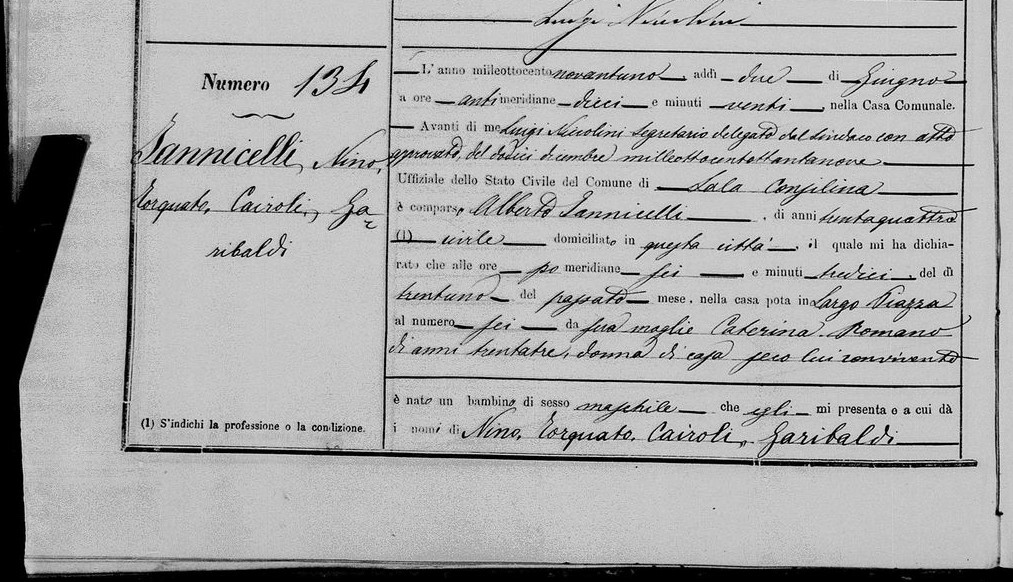 Luigi Nicolini
Numero 134
Iannicelli, Nino,
Torquato, Cairoli, Ga=
ribaldi
(1) S'indichi la professione o la condizione.
L'anno milleottocento novantuno, addì due di Giugno
a ore anti meridiane dieci e minuti venti, nella Casa Comunale.
Avanti di me Luigi Nicolini segretario delegato dal sindaco con atto
approvato del dodici dicembre milleottocentottantanove
Uffiziale dello Stato Civile del Comune di Sala Consilina
è comparso Alberto Iannicelli, di anni trentaquattro
(1) civile domiciliato in questa città, il quale mi ha dichia-
rato che alle ore po meridiane sei e minuti tredici, del dì
trentuno del passato mese, nella casa posta in Largo Piazza
al numero sei da sua moglie Caterina Romano
di anni trentatre, donna di casa seco lui convivente
è nato un bambino di sesso maschile che egli mi presenta e a cui dà
i nomi di Nino, Torquato, Cairoli, Garibaldi